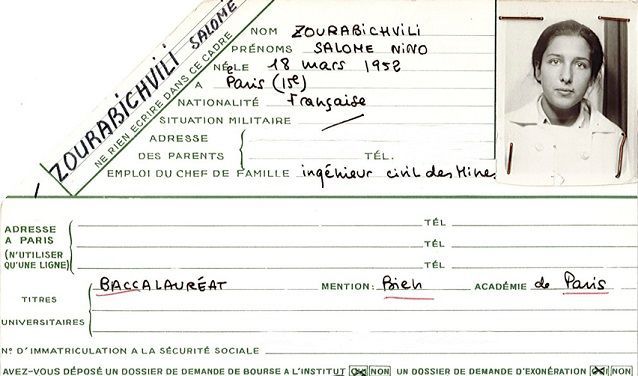 ZOURABICHVILI SALOMÉ
NE RIEN ECRIRE DANS CE CADRE
NOM ZOURABICHVILI
PRÉNOMS SALOME NINO
NÉE LE 18 mars 1952
A Paris (15e)
NATIONALITÉ Française
SITUATION MILITAIRE
ADRESSE
DES PARENTS TÉL.
EMPLOI DU CHEF DE FAMILLE ingénieur civil des Mines
ADRESSE
A PARIS
(N'UTILISER
QU'UNE LIGNE)
TÉL
TÉL
TÉL
BACCALAURÉAT MENTION: Bien ACADÉMIE de Paris
TITRES
UNIVERSITAIRES
N° D'IMMATRICULATION A LA SÉCURITÉ SOCIALE
AVEZ-VOUS DÉPOSÉ UN DOSSIER DE DEMANDE DE BOURSE A L'INSTITUT OUI NON UN DOSSIER DE DEMANDE D'EXONÉRATION OUI NON